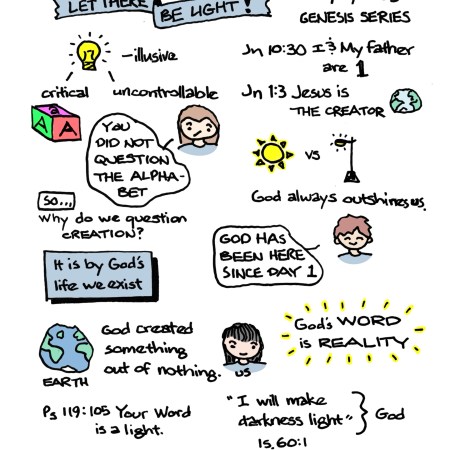 LET THERE BE LIGHT!
GENESIS SERIES
-illusive
critical
uncontrollable
A A
YOU
DID NOT
QUESTION
THE ALPHA-
BET
SO...
Why do we question
CREATION?
It is by God's
life we exist
God created
something
out of nothing.
EARTH
US
Ps 119:105 Your Word
is a light.
Jn 10:30 I & My father
are 1
Jn 1:3 Jesus is
THE CREATOR
VS
God always outshines us.
GOD HAS
BEEN HERE
SINCE DAY 1
God's WORD
is REALITY
"I will make
darkness light" } God
Is. 60:1